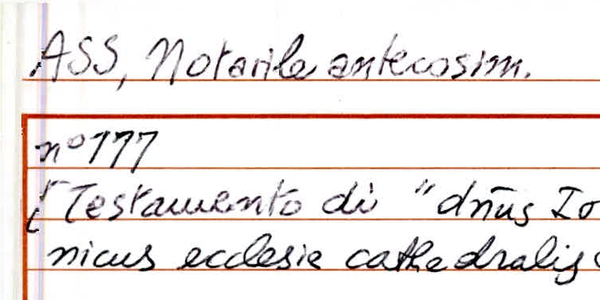 ASS, Notarile antecosim.
n° 777
[Testamento di "dn̄us Io
nicus ecclesie cathedralis